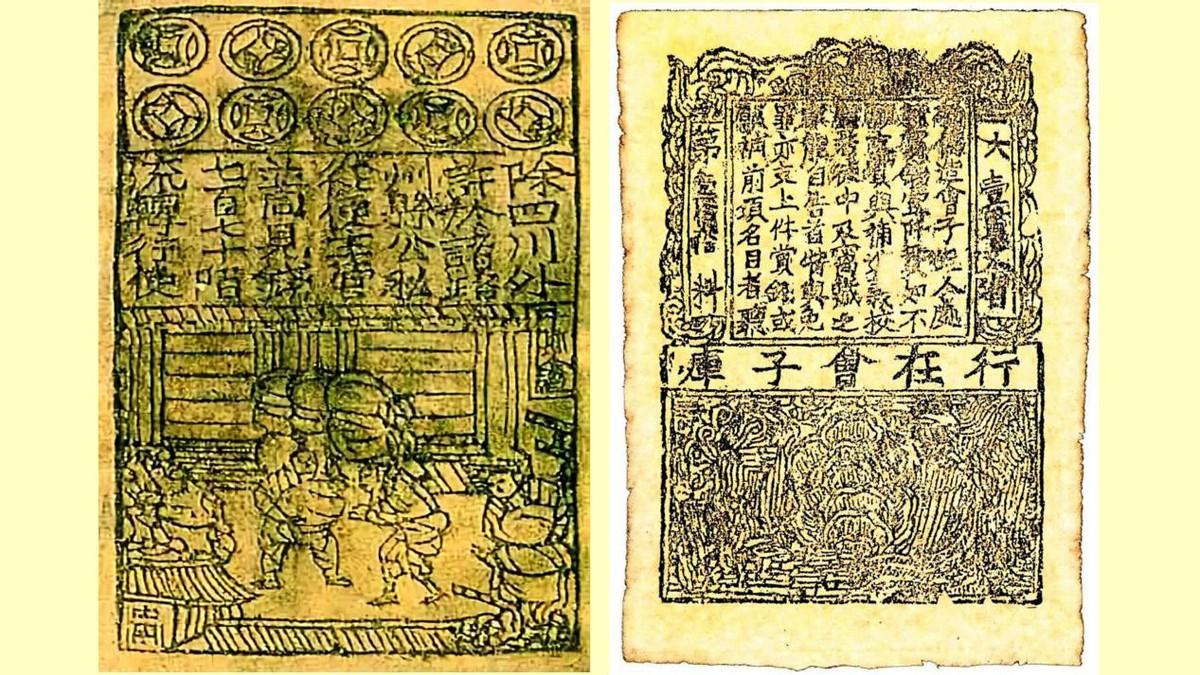 除四川外
許於諸路
州縣公私
從便主管
並同見錢
七百七十陌
流轉行使
大壹貫文省
造會子犯人處
如不
賞與補義校
中及窩藏之
能自告首特與免
罪亦支上件賞錢或
願補前項名目者聽
第料
行在會子庫